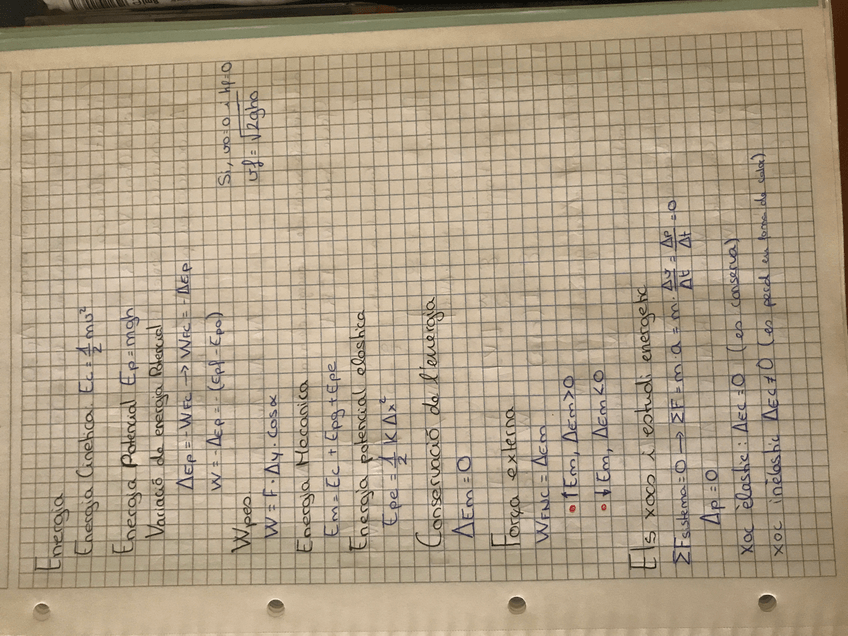 Energia
Energia Cinètica: Ec = 1/2 mv²
Energia Potencial Ep = mgh
Variació de energia Potencial
ΔEp = -WFC → WFC = -ΔEp
W = -ΔEp = (Epf - Epo)
Si, vo = 0 i hf = 0
vf = √2gho
Wpes
W = F · Δy · cosα
Energia Mecanica
Em = Ec + Epg + Epe
Energia potencial elastica
Epe = 1/2 K Δx²
Conservació de l'energia
ΔEm = 0
Força externa
WFNC = ΔEm
• ↑Em, ΔEm>0
• ↓Em, ΔEm<0
Els xocs i estudi energetic
ΣFsistema = 0 → ΣF = m · a = m · Δv/Δt = Δp/Δt = 0
Δp = 0
xoc elastic: ΔEc = 0 (es conserva)
xoc inelastic ΔEc ≠ 0 (es perd en forma de calor)